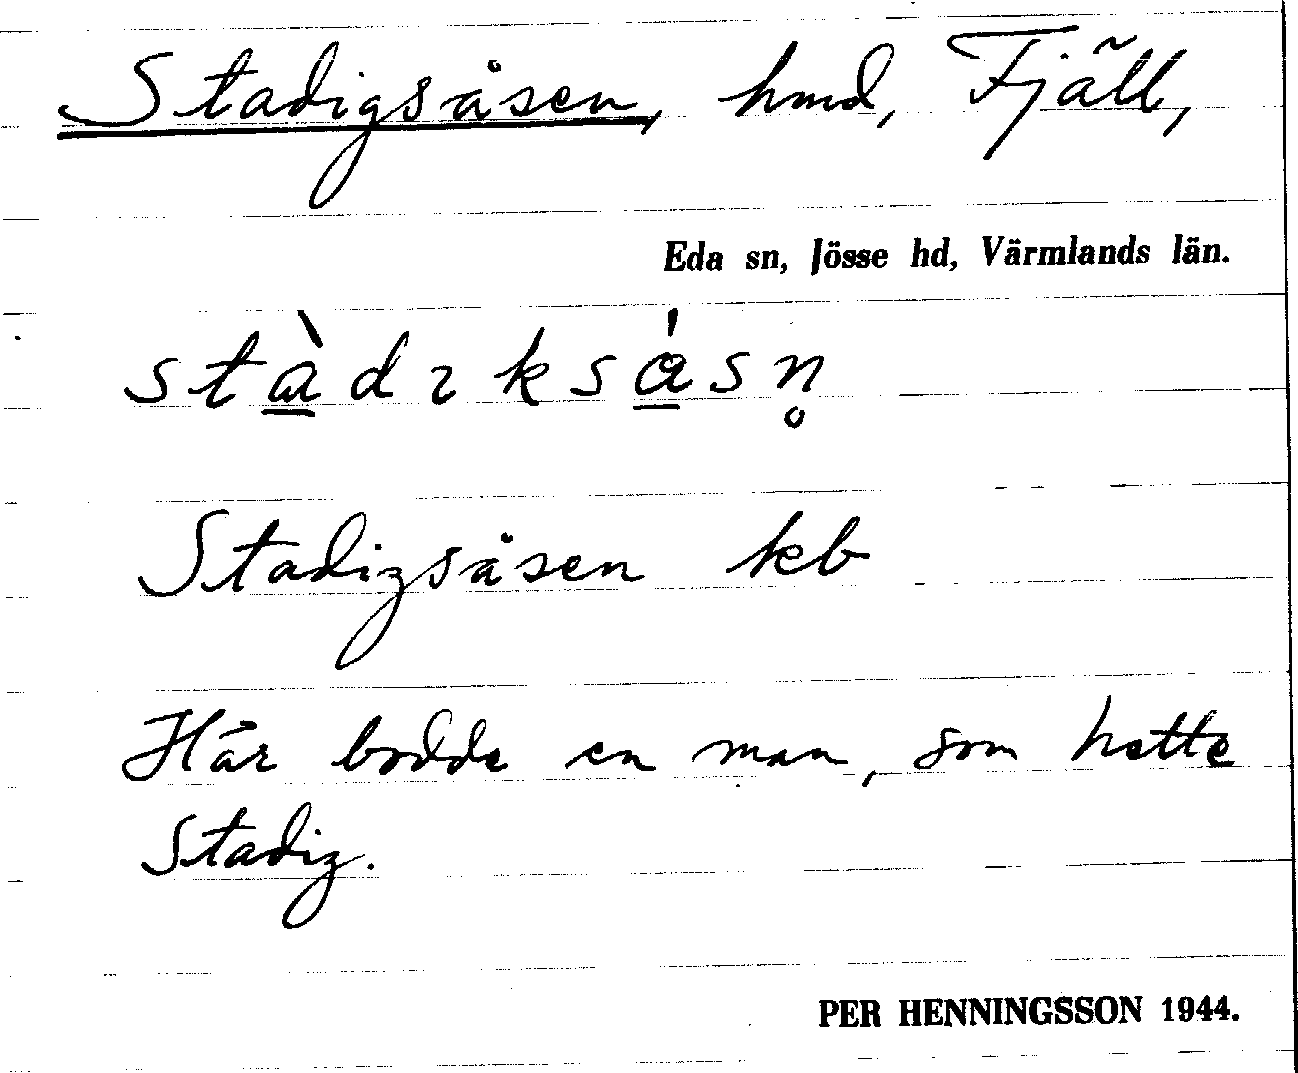 Stadigsåsen, hmd, Fjäll,
Eda sn, Jösse hd, Värmlands län.
stà̱dıksǻ̱sn̥
Stadigsåsen kb
Här bodde en man, som hette
Stadig.
PER HENNINGSSON 1944.